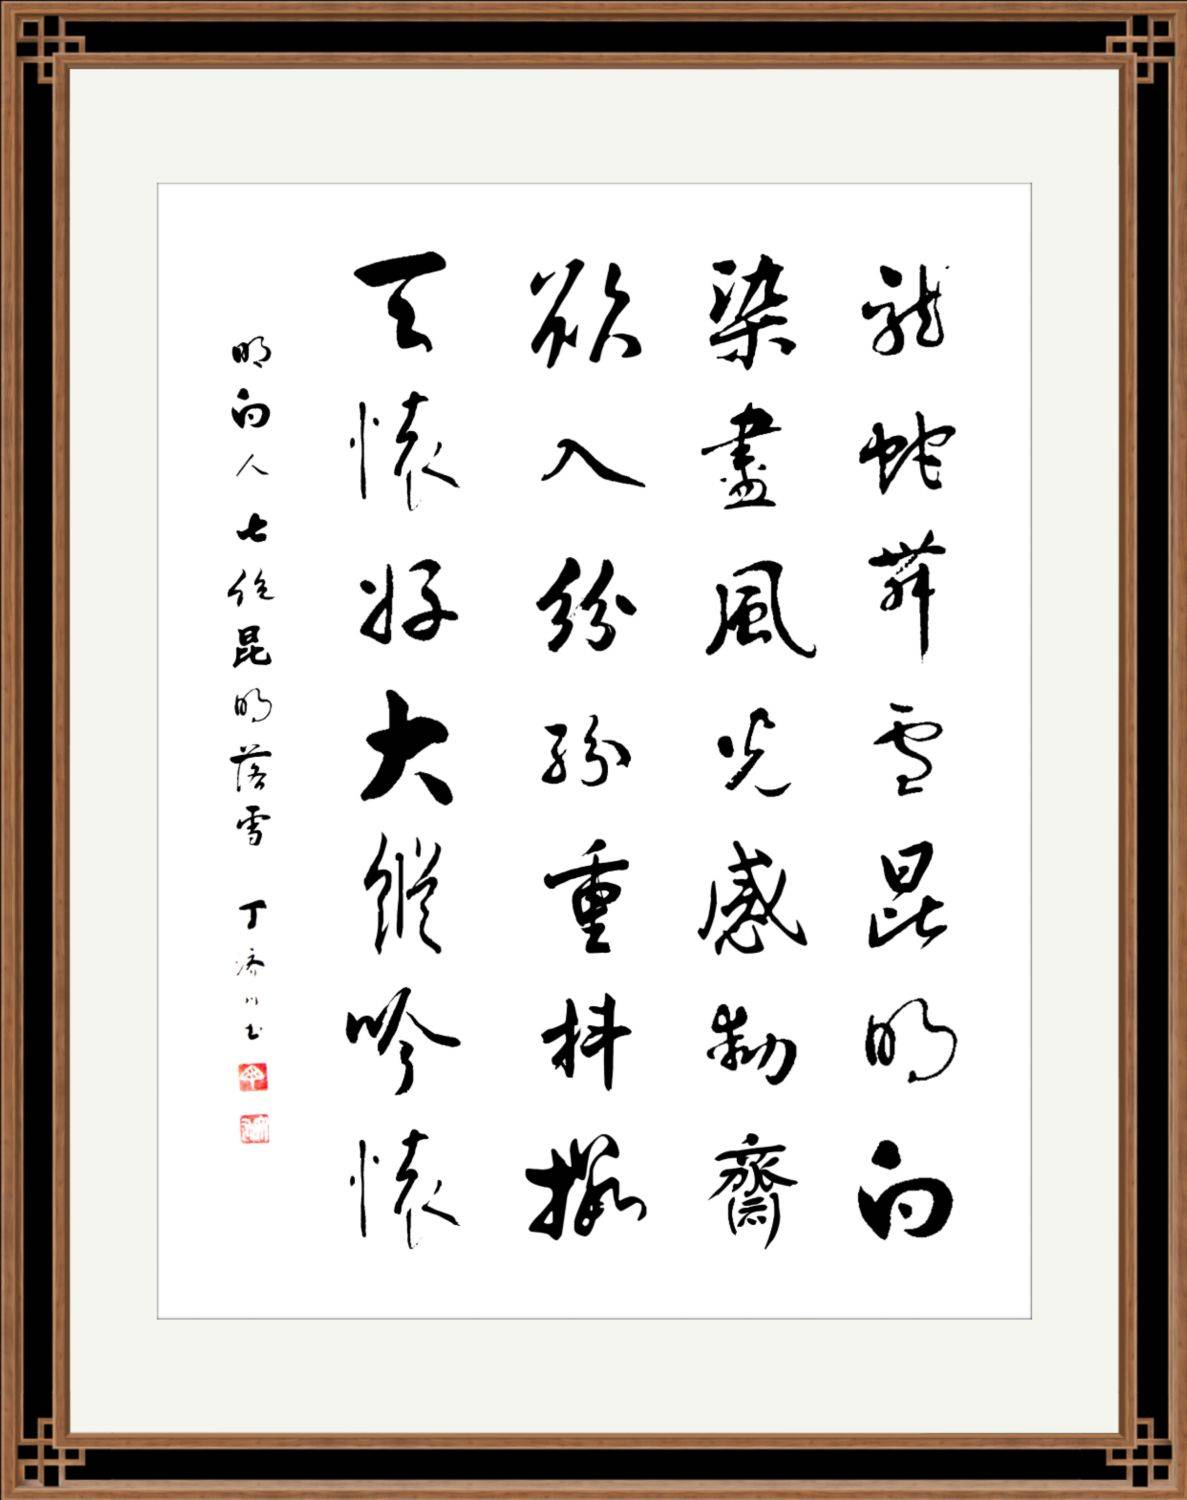 龍蛇舞雪昆明白
染盡風光感勑齋
欲入紛紛重抖擻
天懷好大縱吟懷
明白人七絕昆明落雪 丁濟川书